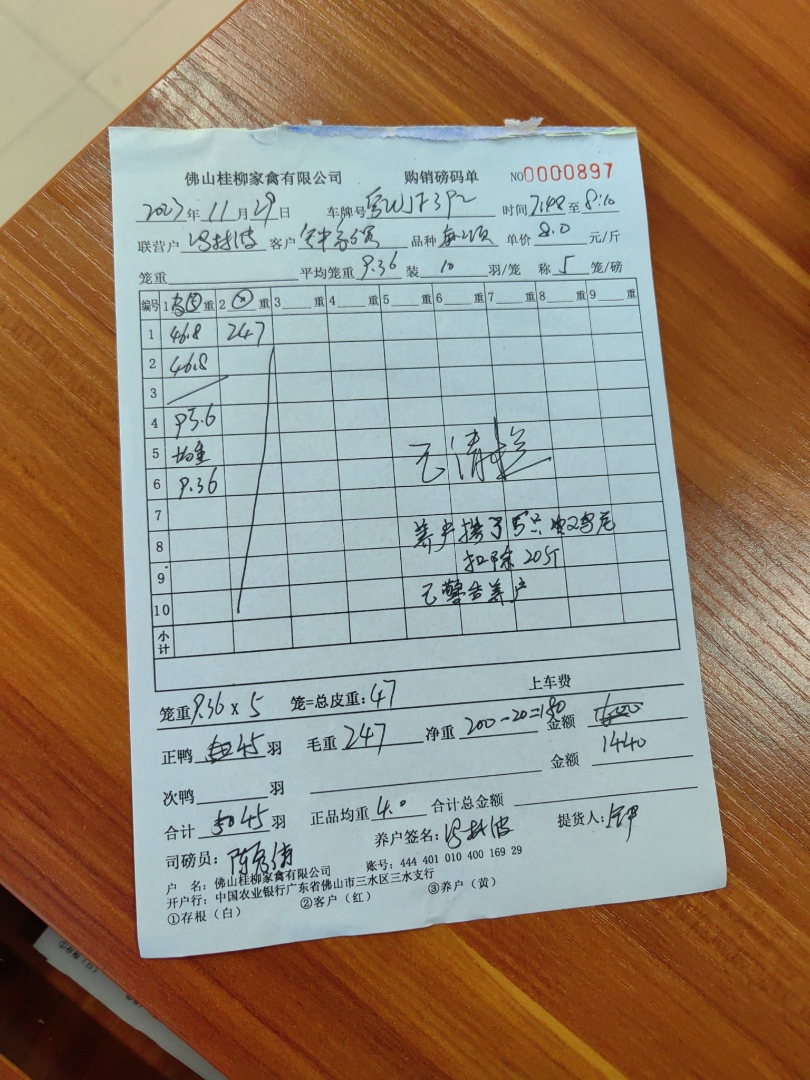 佛山桂柳家禽有限公司 购销磅码单 NO0000897
2023年11月29日 车牌号 时间7:48至8:10
联营户 客户 品种 单价8.0元/斤
笼重 平均笼重9.36装10羽/笼 称5笼/磅
编号 1 重 2 重 3 重 4 重 5 重 6 重 7 重 8 重 9 重
1 46.8 247
2 46.8
3
4 93.6
5 均重
6 9.36
已清
7
养户 
8
扣除20斤
9
已警告养户
10
小计
笼重9.36×5 笼=总皮重:47 上车费
正鸭45羽 毛重247 净重200-20=180 金额1600
金额1440
次鸭 羽
合计50 45羽 正品均重4.0 合计总金额
司磅员: 养户签名: 提货人:
户 名:佛山桂柳家禽有限公司 账号:444 401 010 400 169 29
开户行:中国农业银行广东省佛山市三水区三水支行
①存根(白) ②客户(红) ③养户(黄)